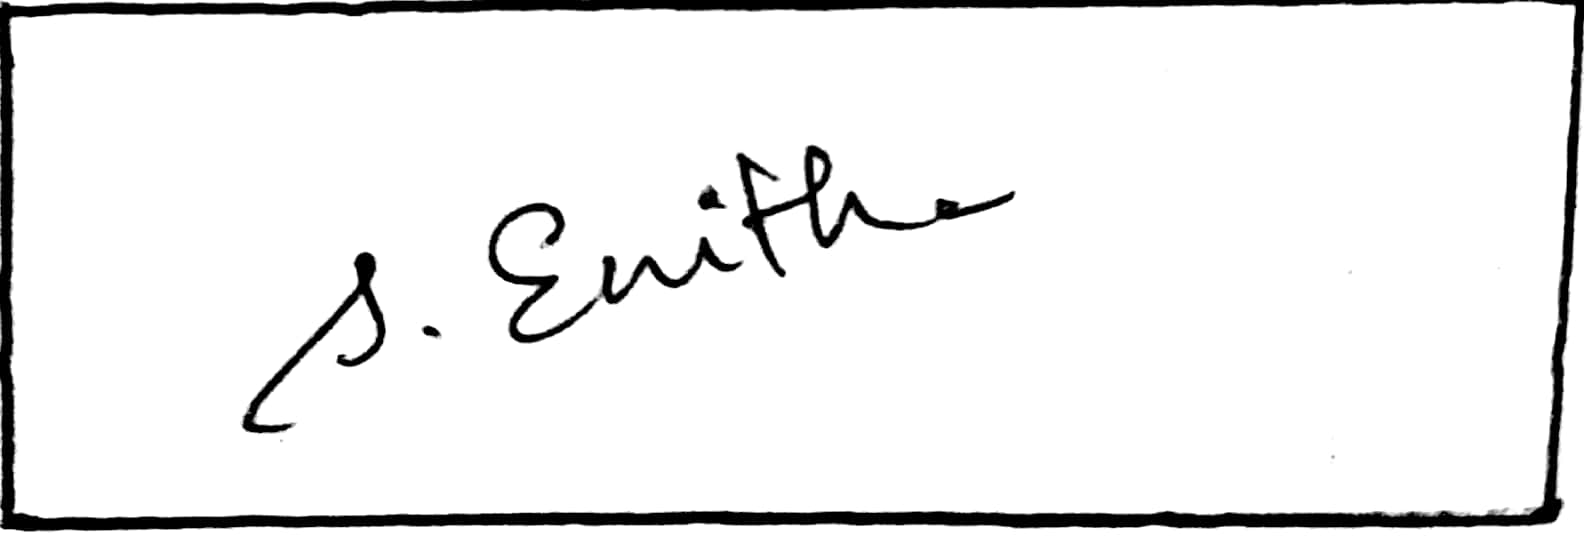 S. Enitha